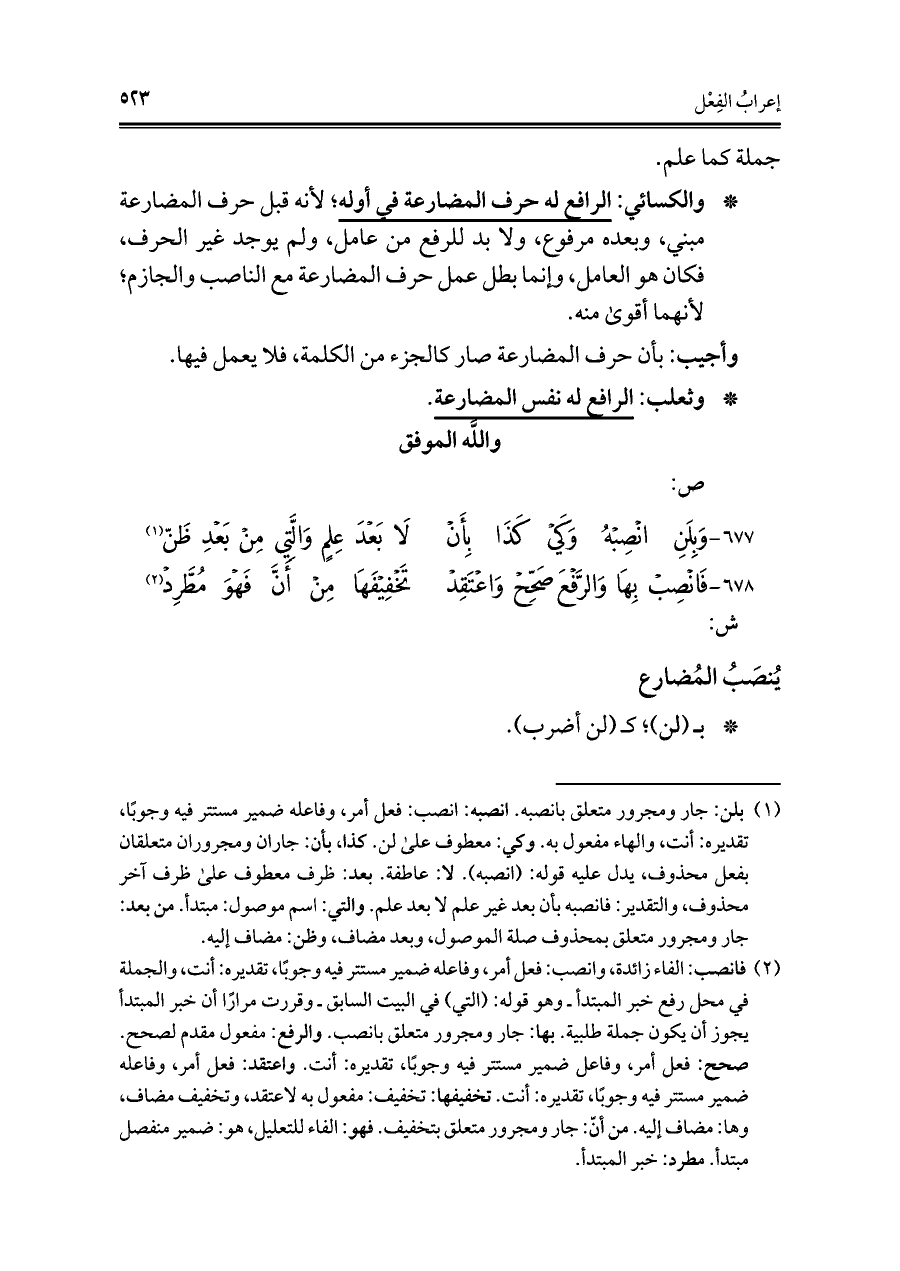 إعرابُ الفِعْل
٥٢٣
جملة كما علم.
* والكسائي: الرافع له حرف المضارعة في أوله؛ لأنه قبل حرف المضارعة
مبني، وبعده مرفوع، ولا بد للرفع من عامل، ولم يوجد غير الحرف،
فكان هو العامل، وإنما بطل عمل حرف المضارعة مع الناصب والجازم؛
لأنهما أقوىٰ منه.
وأجيب: بأن حرف المضارعة صار كالجزء من الكلمة، فلا يعمل فيها.
* وثعلب: الرافع له نفس المضارعة.
واللَّه الموفق
ص:
٦٧٧-وَبِلَنِ انْصِبْهُ وَكَيْ كَذَا بِأَنْ لَا بَعْدَ عِلمٍ وَالَّتِي مِنْ بَعْدِ ظَنّ(١)
٦٧٨-فَانْصِبْ بِهَا وَالرَّفْعَ صَحِّحْ وَاعْتَقِدْ تَخْفِيْفَهَا مِنْ أَنَّ فَهْوَ مُطَّرِدْ(٢)
ش:
يُنصَبُ المُضارع
* بـ (لن)؛ كـ (لن أضرب).
(١) بلن: جار ومجرور متعلق بانصبه. انصبه: انصب: فعل أمر، وفاعله ضمير مستتر فيه وجوبًا،
تقديره: أنت، والهاء مفعول به. وكي: معطوف علىٰ لن. كذا، بأن: جاران ومجروران متعلقان
بفعل محذوف، يدل عليه قوله: (انصبه). لا: عاطفة. بعد: ظرف معطوف علىٰ ظرف آخر
محذوف، والتقدير: فانصبه بأن بعد غير علم لا بعد علم. والتي: اسم موصول: مبتدأ. من بعد:
جار ومجرور متعلق بمحذوف صلة الموصول، وبعد مضاف، وظن: مضاف إليه.
(٢) فانصب: الفاء زائدة، وانصب: فعل أمر، وفاعله ضمير مستتر فيه وجوبًا، تقديره: أنت، والجملة
في محل رفع خبر المبتدأ ـ وهو قوله: (التي) في البيت السابق ـ وقررت مرارًا أن خبر المبتدأ
يجوز أن يكون جملة طلبية. بها: جار ومجرور متعلق بانصب. والرفع: مفعول مقدم لصحح.
صحح: فعل أمر، وفاعل ضمير مستتر فيه وجوبًا، تقديره: أنت. واعتقد: فعل أمر، وفاعله
ضمير مستتر فيه وجوبًا، تقديره: أنت. تخفيفها: تخفيف: مفعول به لاعتقد، وتخفيف مضاف،
وها: مضاف إليه. من أنّ: جار ومجرور متعلق بتخفيف. فهو: الفاء للتعليل، هو: ضمير منفصل
مبتدأ. مطرد: خبر المبتدأ.